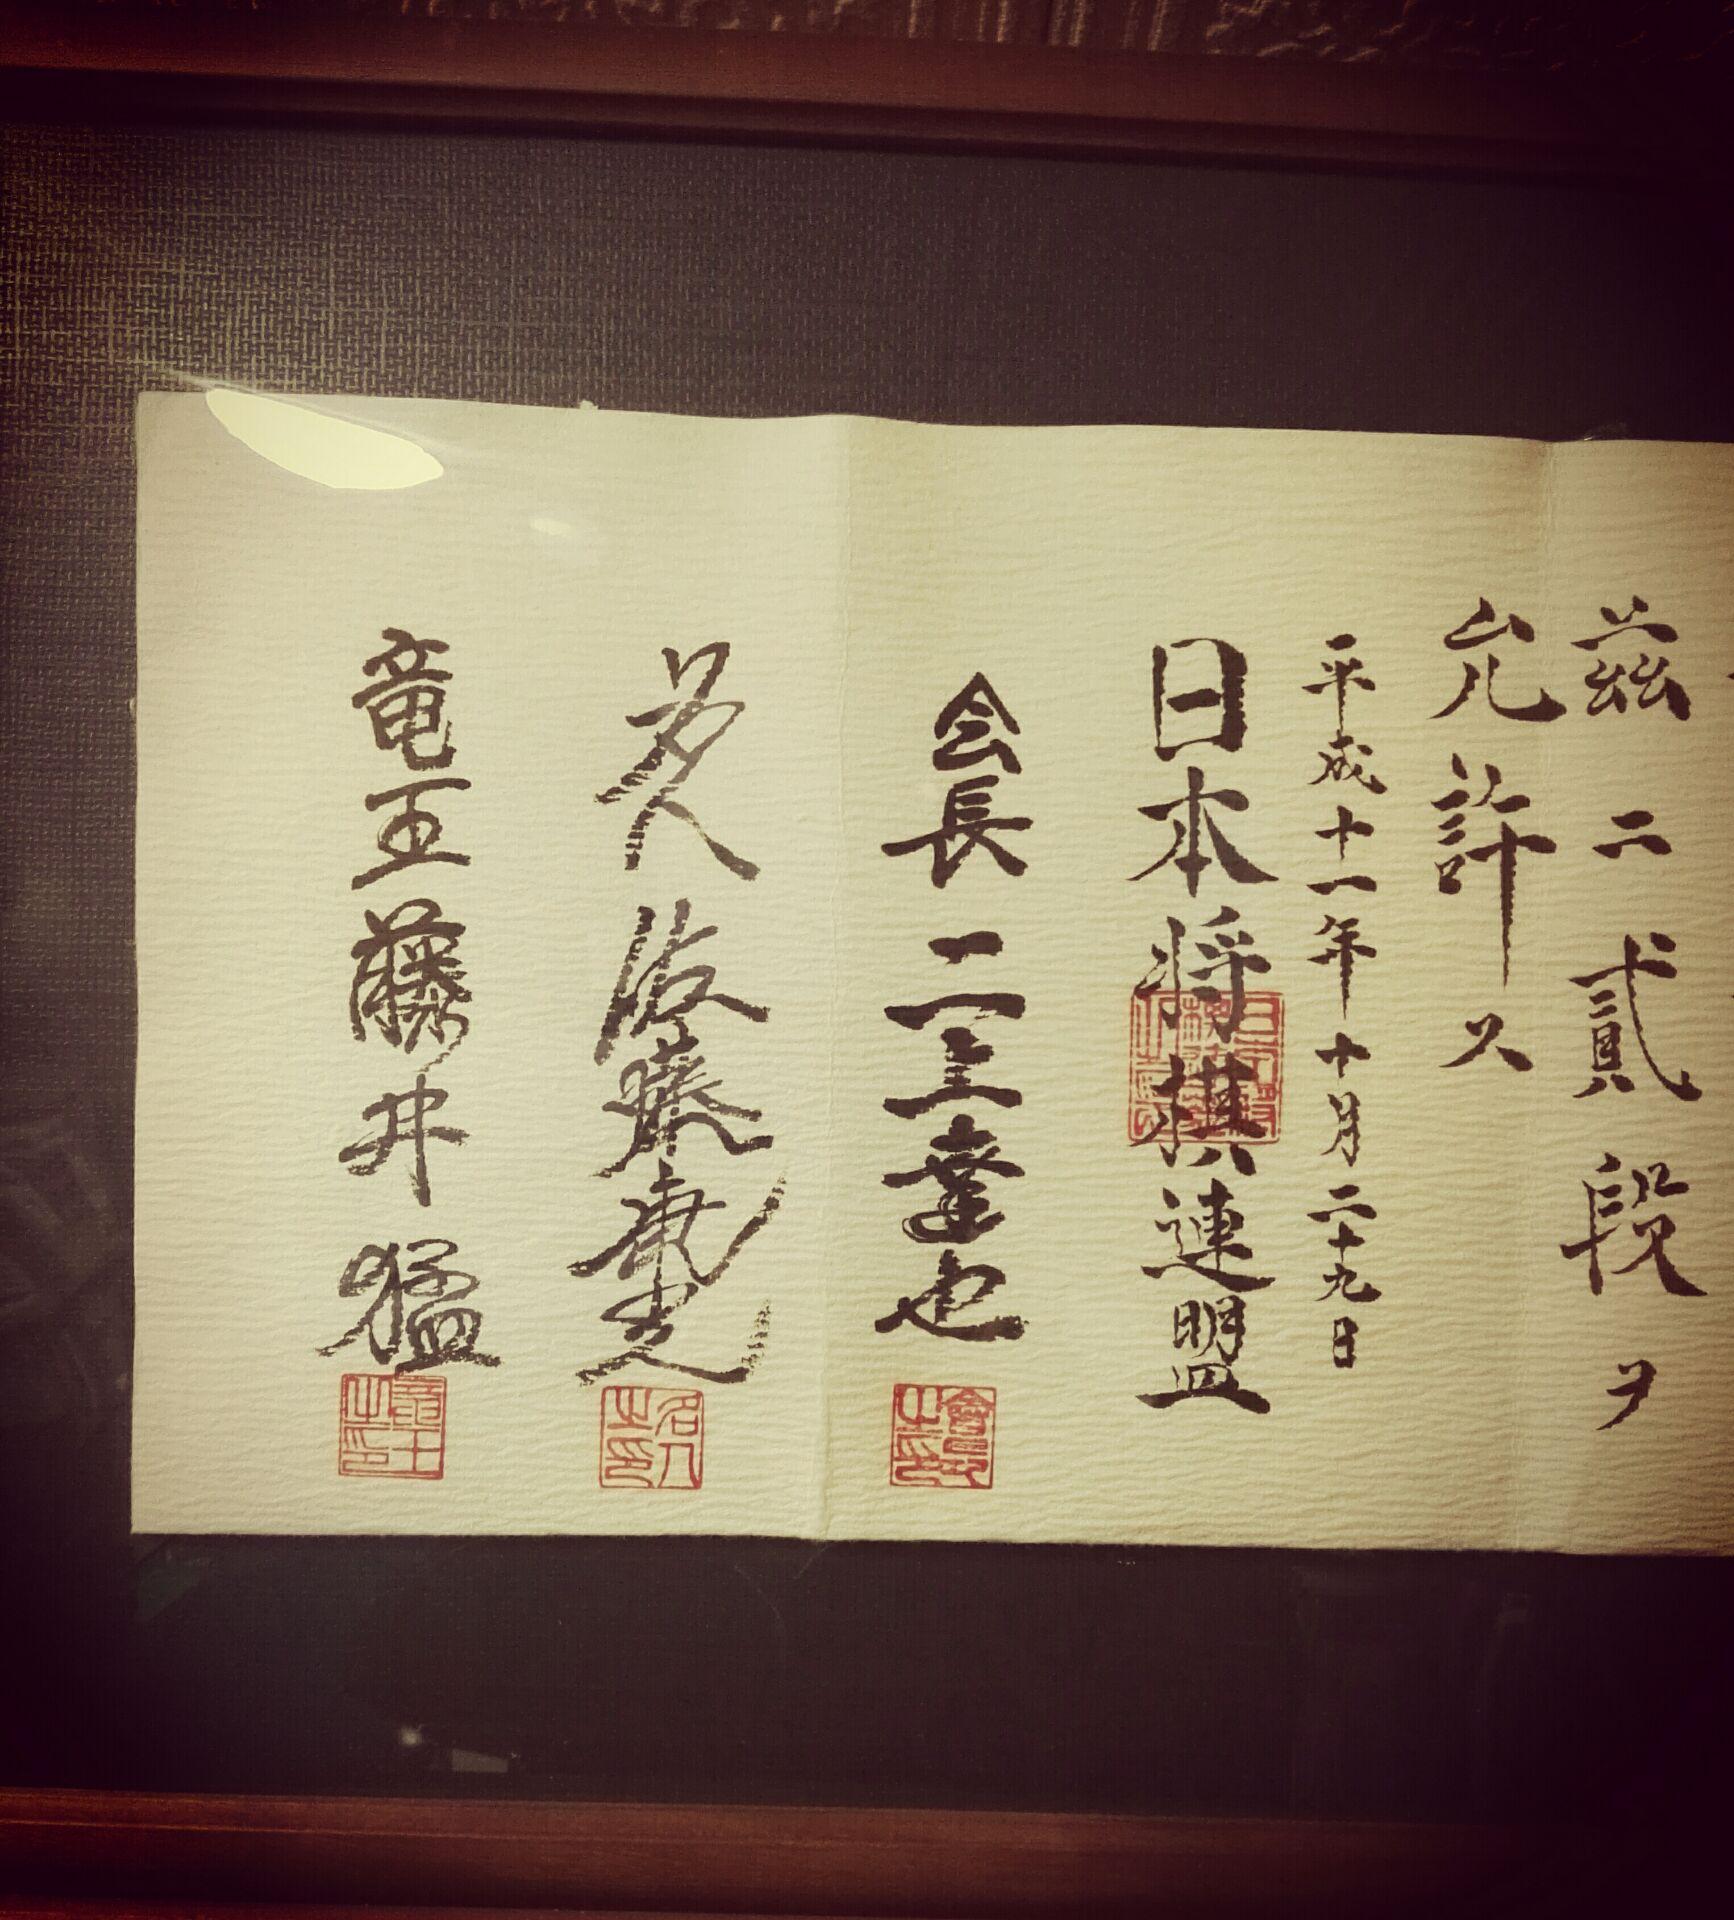 茲ニ貳段ヲ
允許ス
平成十一年十月二十九日
日本将棋連盟
会長 二上達也
名人 佐藤康光
竜王 藤井猛